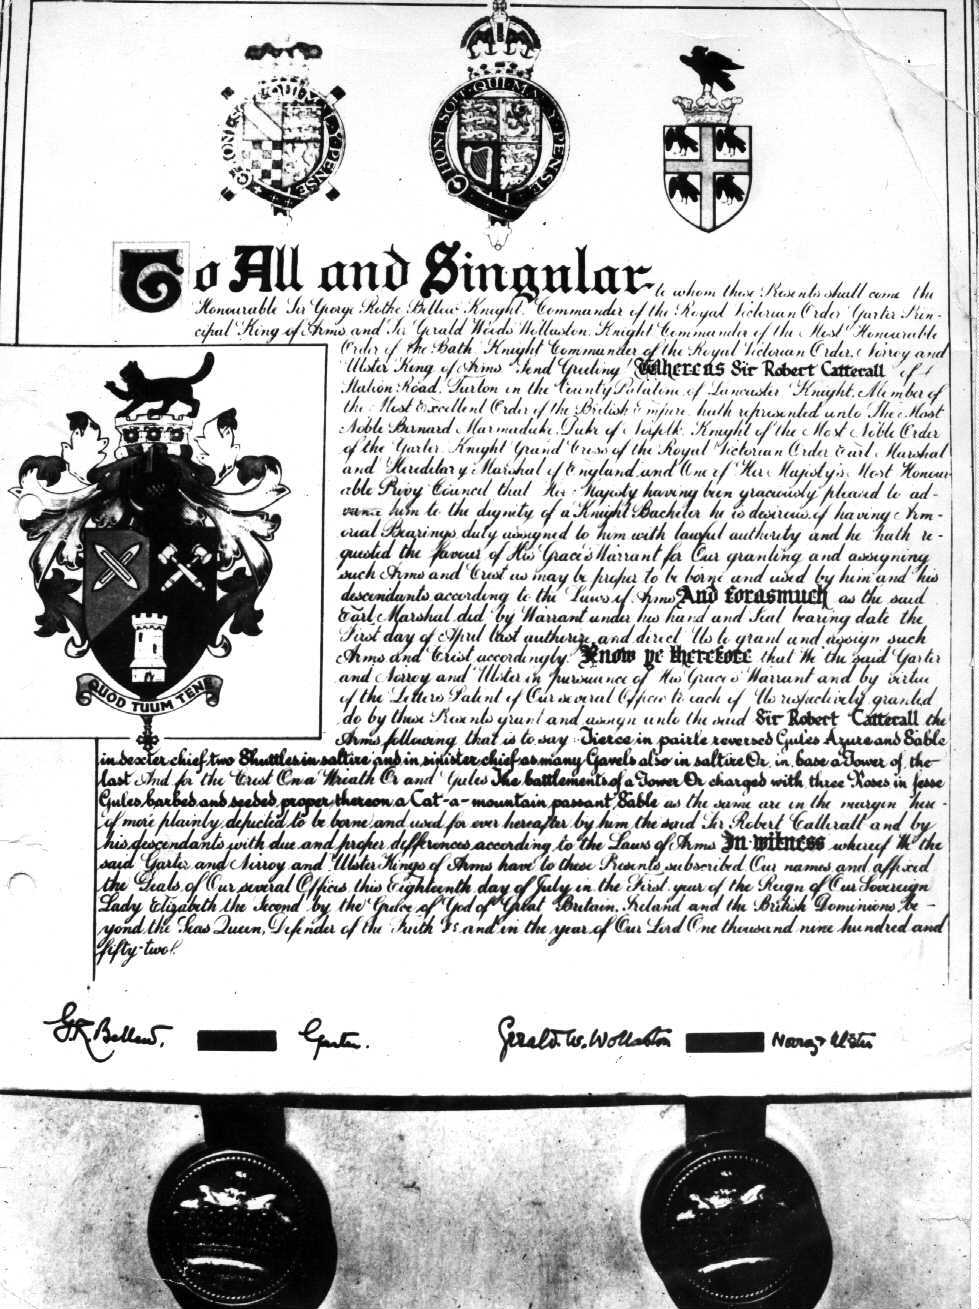 HONI·SOIT·QUI·MAL·Y·PENSE
HONI·SOIT·QUI·MAL·Y·PENSE
To All and Singular to whom these Presents shall come the
Honourable Sir George Rothe Bellew Knight, Commander of the Royal Victorian Order, Garter Prin-
cipal King of Arms and Sir Gerald Woods Wollaston, Knight Commander of the Most Honourable
Order of the Bath, Knight Commander of the Royal Victorian Order, Norroy and
Ulster King of Arms Send Greeting Whereas Sir Robert Catterall of 4
Station Road, Turton in the County Palatine of Lancaster Knight, Member of
the Most Excellent Order of the British Empire, hath represented unto The Most
Noble Bernard Marmaduke, Duke of Norfolk, Knight of the Most Noble Order
of the Garter, Knight Grand Cross of the Royal Victorian Order Earl Marshal
and Hereditary Marshal of England and One of Her Majesty's Most Honour-
able Privy Council that Her Majesty having been graciously pleased to ad-
vance him to the dignity of a Knight Bachelor he is desirous of having Arm-
orial Bearings duly assigned to him with lawful authority and he hath re-
quested the favour of His Grace's Warrant for Our granting and assigning
such Arms and Crest as may be proper to be borne and used by him and his
descendants according to the Laws of Arms And forasmuch as the said
Earl Marshal did by Warrant under his hand and Seal bearing date the
First day of April last authorize and direct Us to grant and assign such
Arms and Crest accordingly Know ye therefore that We the said Garter
and Norroy and Ulster in pursuance of His Grace's Warrant and by virtue
of the Letters Patent of Our several Offices to each of Us respectively granted
do by these Presents grant and assign unto the said Sir Robert Catterall the
Arms following that is to say: Tierce in pairle reversed Gules Azure and Sable
in dexter chief two Shuttles in saltire and in sinister chief as many Gavels also in saltire Or, in base a Tower of the
last And for the Crest On a Wreath Or and Gules The battlements of a Tower Or charged with three Roses in fesse
Gules, barbed and seeded proper thereon a Cat-a-mountain passant Sable as the same are in the margin here-
of more plainly depicted to be borne and used for ever hereafter by him the said Sir Robert Catterall and by
his descendants with due and proper differences according to the Laws of Arms In witness whereof We the
said Garter and Norroy and Ulster Kings of Arms have to these Presents subscribed Our names and affixed
the Seals of Our several Offices this Eighteenth day of July in the First year of the Reign of Our Sovereign
Lady Elizabeth the Second by the Grace of God of Great Britain, Ireland and the British Dominions be-
yond the Seas Queen, Defender of the Faith &c and in the year of Our Lord One thousand nine hundred and
fifty-two.
QUOD TUUM TENE
G.R. Bellew. Garter.
Gerald W. Wollaston Norroy & Ulster